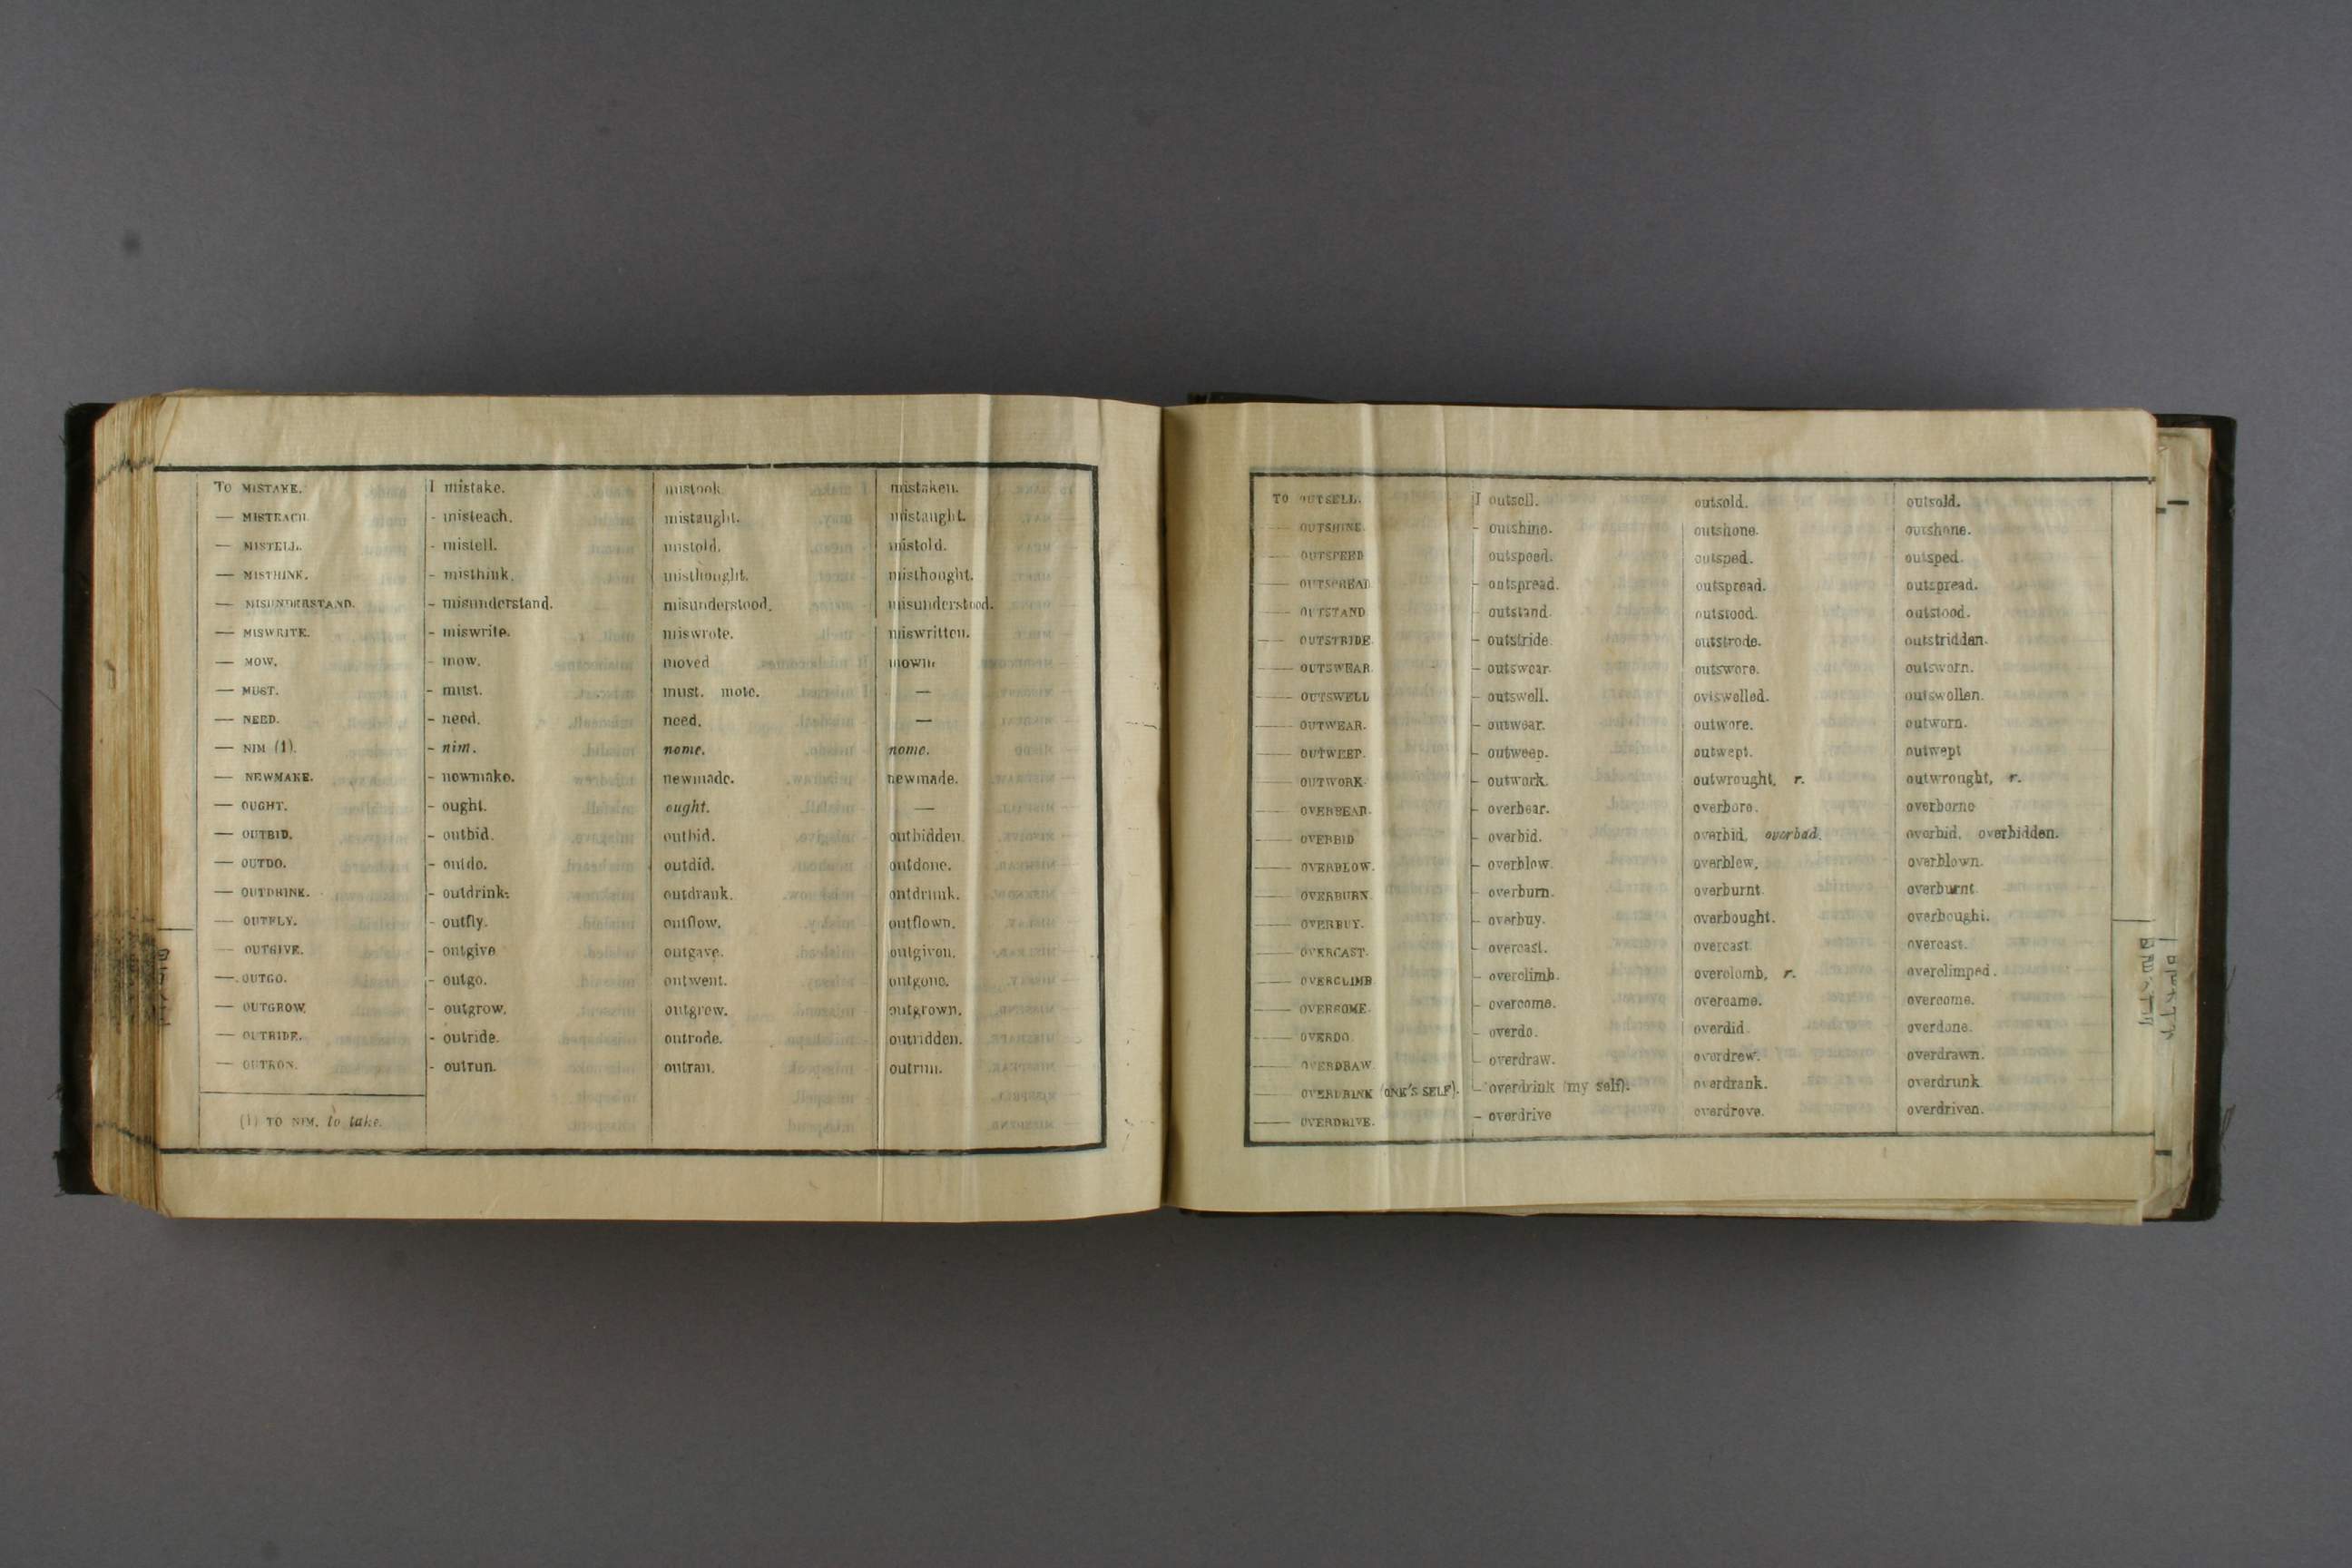 To MISTAKE. I mistake. mistook. mistaken.
— MISTEACH. - misteach. mistaught. mistaught.
— MISTELL. - mistell. mistold. mistold.
— MISTHINK. - misthink. misthought. misthought.
— MISUNDERSTAND. - misunderstand. misunderstood. misunderstood.
— MISWRITE. - miswrite. miswrote. miswritten.
— MOW. - mow. moved mown.
— MUST. - must. must. mote. —
— NEED. - need. need. —
— NIM (1). - nim. nome. nome.
— NEWMAKE. - newmake. newmade. newmade.
— OUGHT. - ought. ought. —
— OUTBID. - outbid. outbid. outbidden.
— OUTDO. - outdo. outdid. outdone.
— OUTDRINK. - outdrink. outdrank. outdrunk.
— OUTFLY. - outfly. outflow. outflown.
— OUTGIVE. - outgive outgave. outgiven.
— OUTGO. - outgo. outwent. outgone.
— OUTGROW. - outgrow. outgrew. outgrown.
— OUTRIDE. - outride. outrode. outridden.
— OUTRUN. - outrun. outran. outrun.
(1) TO NIM. to take.
TO OUTSELL. I outsell. outsold. outsold.
— OUTSHINE. - outshine. outshone. outshone.
— OUTSPEED outspeed. outsped. outsped.
— OUTSPREAD. - outspread. outspread. outspread.
— OUTSTAND - outstand. outstood. outstood.
— OUTSTRIDE. - outstride. outstrode. outstridden.
— OUTSWEAR. - outswear. outswore. outsworn.
— OUTSWELL - outswell. oviswelled. outswollen.
— OUTWEAR. - outwear. outwore. outworn.
— OUTWEEP. - outweep. outwept. outwept
— OUTWORK. - outwork. outwrought, r. outwrought, r.
— OVERBEAR. - overbear. overbore. overborne
— OVERBID - overbid. overbid, overbad. overbid, overbidden.
— OVERBLOW. - overblow. overblew. overblown.
— OVERBURN. - overburn. overburnt. overburnt.
— OVERBUY. - overbuy. overbought. overbought.
— OVERCAST. - overcast. overcast. overcast.
— OVERCLIMB. - overclimb. overclomb, r. overclimped.
— OVERCOME. - overcome. overcame. overcome.
— OVERDO. - overdo. overdid. overdone.
— OVERDRAW. - overdraw. overdrew. overdrawn.
— OVERDRINK (ONE'S SELF). - overdrink (my self). overdrank. overdrunk
— OVERDRIVE. - overdrive overdrove. overdriven.